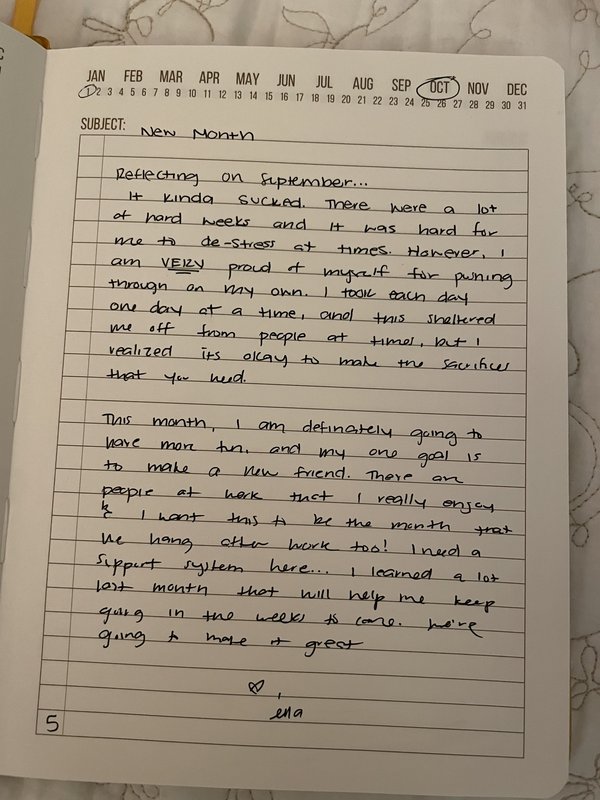 JAN FEB MAR APR MAY JUN JUL AUG SEP OCT NOV DEC
1 2 3 4 5 6 7 8 9 10 11 12 13 14 15 16 17 18 19 20 21 22 23 24 25 26 27 28 29 30 31
SUBJECT: New Month
Reflecting on September...
It kinda sucked. There were a lot
of hard weeks and it was hard for
me to de-stress at times. However, I
am VERY proud of myself for pushing
through on my own. I took each day
one day at a time, and this sheltered
me off from people at times, but I
realized its okay to make the sacrifices
that you need.
This month, I am definately going to
have more fun, and my one goal is
to make a new friend. There are
people at work that I really enjoy
& I want this to be the month that
we hang after work too! I need a
support system here... I learned a lot
last month that will help me keep
going in the weeks to come. We're
going to make it great
♡,
ella
5